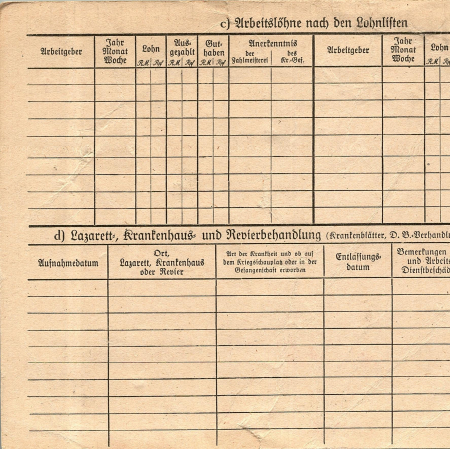 c) Arbeitslöhne nach den Lohnlisten
Arbeitgeber
Jahr
Monat
Woche
Lohn
RM Rpf
Aus-
gezahlt
RM Rpf
Gut-
haben
RM Rpf
Anerkenntnis
der
Zahlmeisterei
des
Kr.-Gef.
Arbeitgeber
Jahr
Monat
Woche
Lohn
RM Rpf
d) Lazarett-, Krankenhaus- und Revierbehandlung (Krankenblätter, D. B.-Verhandlu
Aufnahmedatum
Ort,
Lazarett, Krankenhaus
oder Revier
Art der Krankheit und ob auf
dem Kriegsschauplatz oder in der
Gefangenschaft erworben
Entlassungs-
datum
Bemerkungen
und Arbeits
Dienstbeschäd